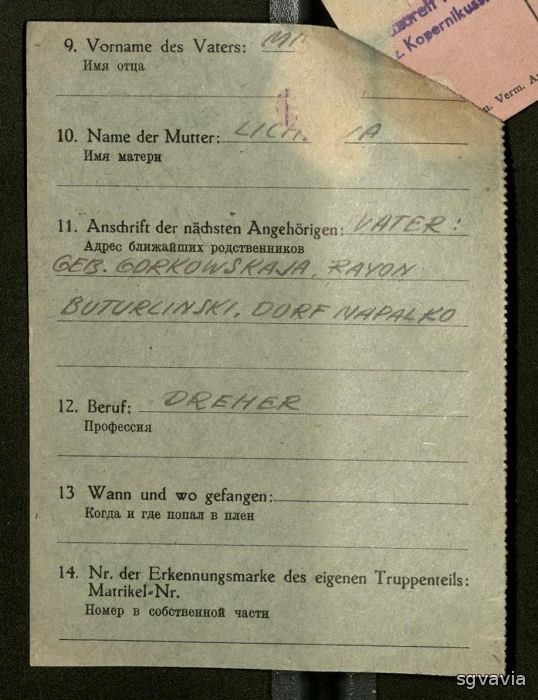 Kopernikus
u. Verm. A
9. Vorname des Vaters:
Имя отца
10. Name der Mutter:
Имя матери
11. Anschrift der nächsten Angehörigen: VATER:
Адрес ближайших родственников
GEB. GORKOWSKAJA, RAYON
BUTURLINSKI, DORF NAPALKO
12. Beruf: DREHER
Профессия
13 Wann und wo gefangen:
Когда и где попал в плен
14. Nr. der Erkennungsmarke des eigenen Truppenteils:
Matrikel-Nr.
Номер в собственной части
sgvavia